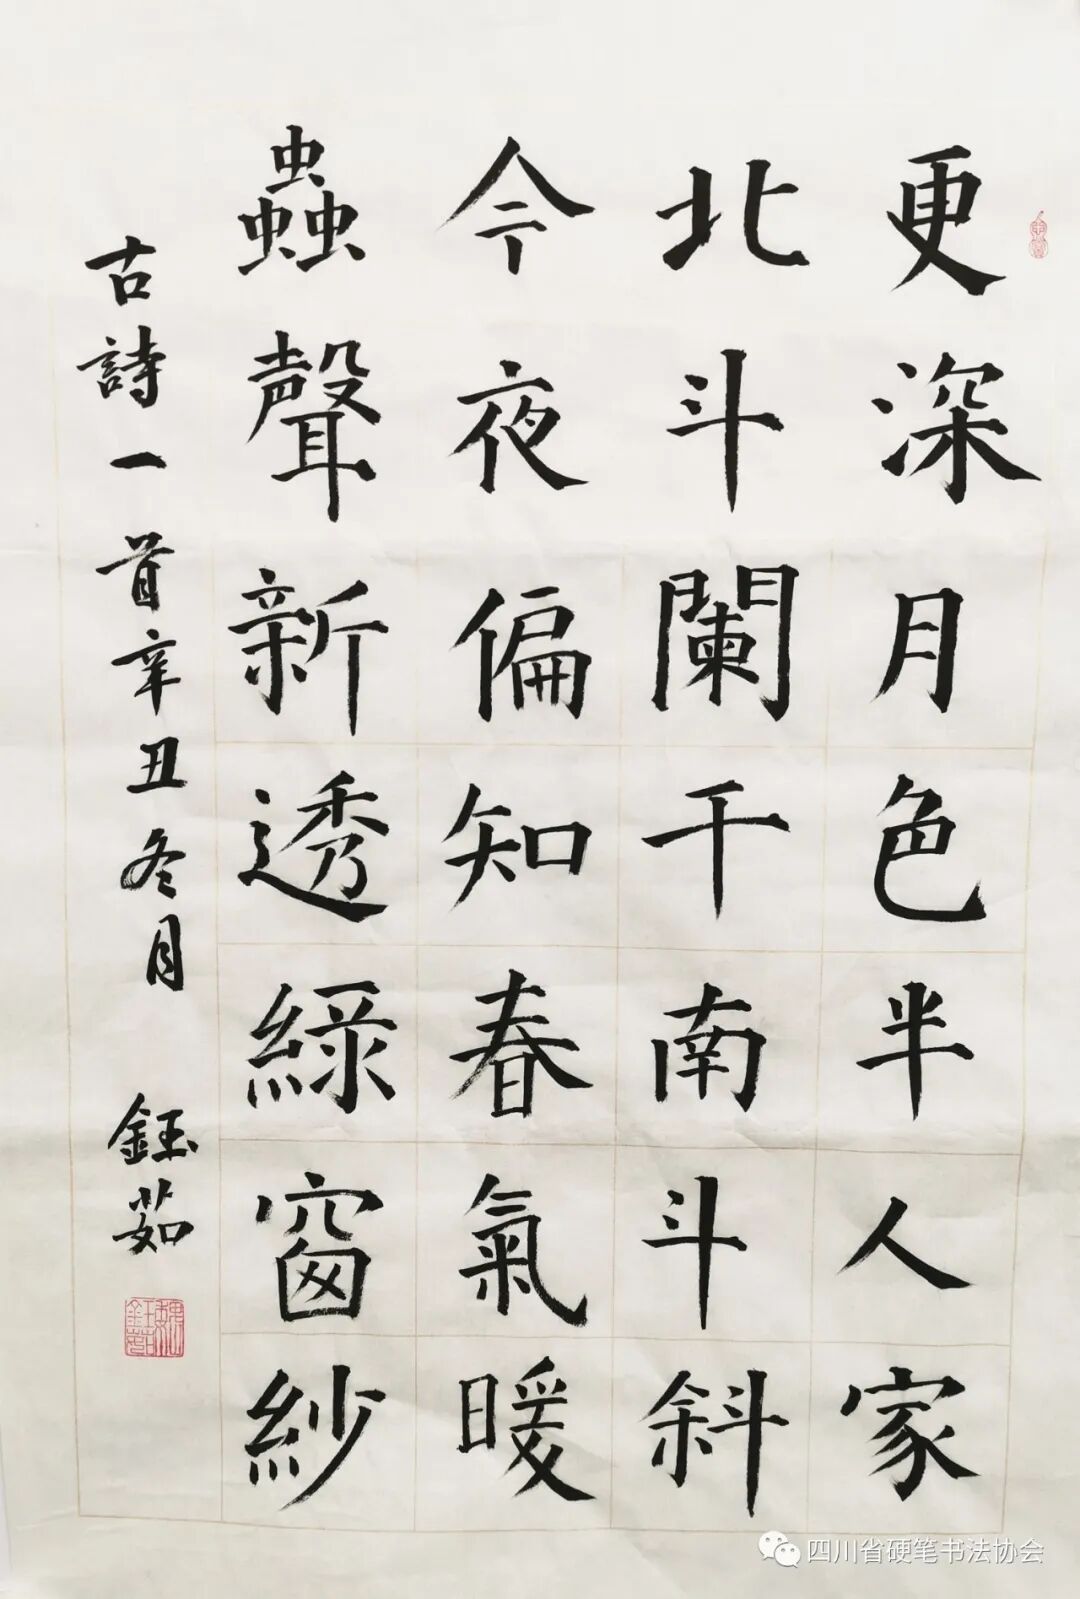 更深月色半人家
北斗闌干南斗斜
今夜偏知春氣暖
蟲聲新透綠窗紗
古詩一首辛丑冬月
鈺茹
四川省硬笔书法协会